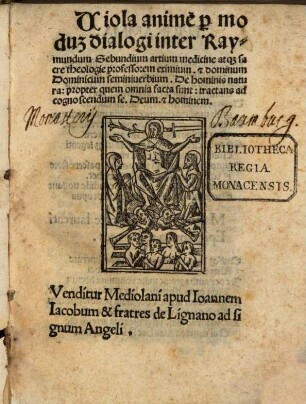 Viola anime ꝑ mo
duʒ dialogi inter Ray-
mundum Sebundium artium medicine atqʒ sa
cre theologie professorem eximium. ⁊ dominum
Dominicum seminiverbium. De hominis natu
ra: propter quem omnia facta sunt: tractans ad
cognoscendum se. Deum. ⁊ hominem.
Monasterij Baumburg.
BIBLIOTHECA
REGIA
MONACENSIS.
Venditur Mediolani apud Ioannem
Iacobum & fratres de Lignano ad si
gnum Angeli.